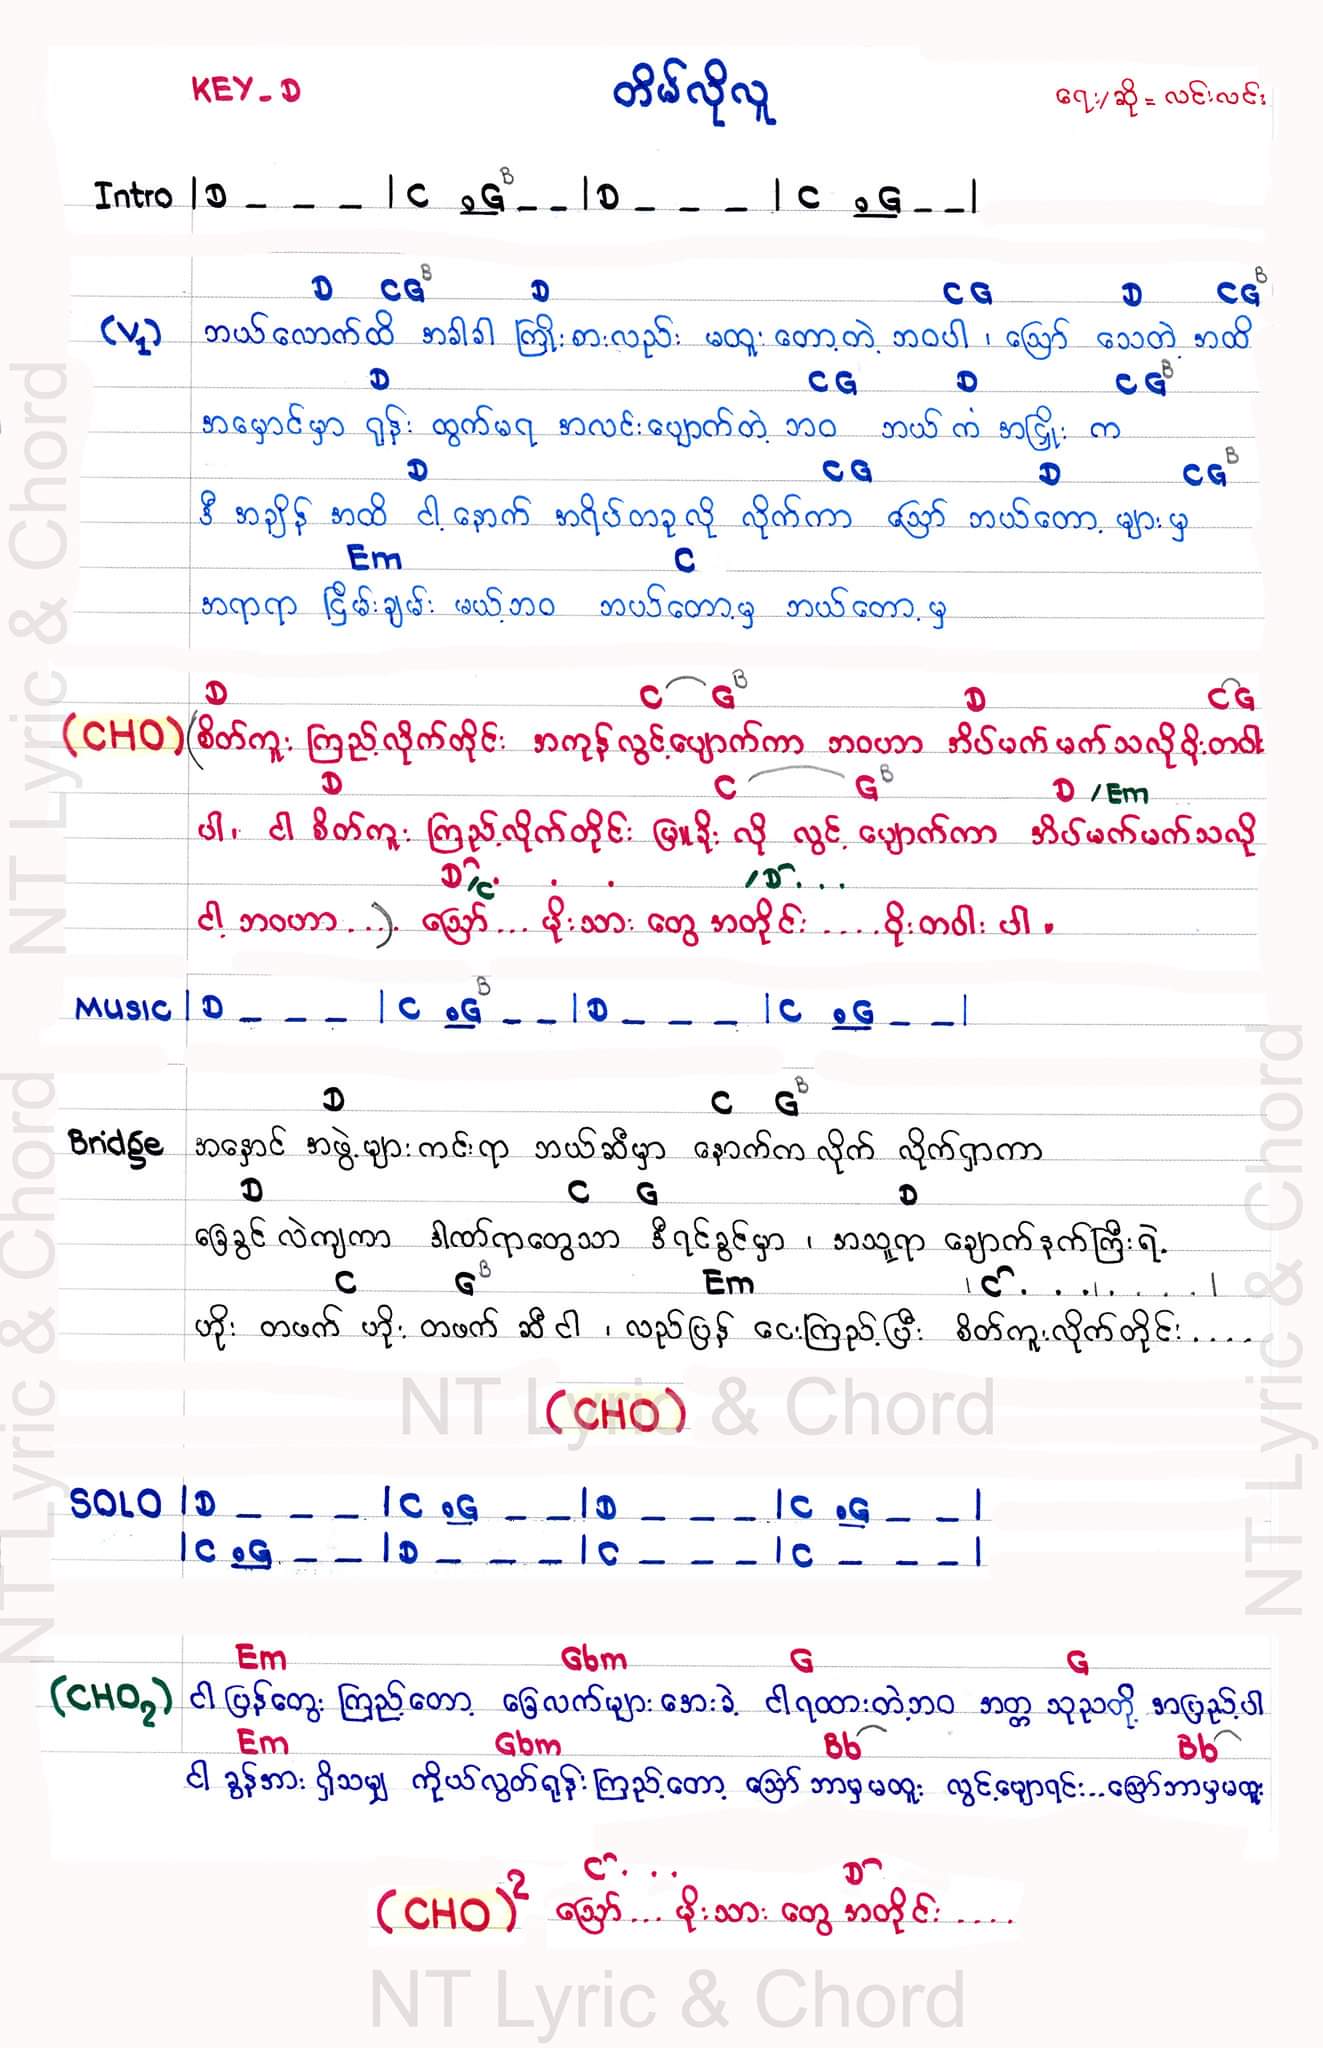 KEY-D တိမ်လိုလူ ရေး/ဆို = လင်းလင်း
Intro |D _ _ _ |C .G B _ _|D _ _ _ |C .G _ _|
D CG B D CG D CG B
(V1) ဘယ်လောက်ထိ အခါခါ ကြိုးစားလည်း မထူးတော့တဲ့ ဘဝပါ ၊ ဪ သေတဲ့ အထိ
D CG D CG B
အမှောင်မှာ ရုန်း ထွက်မရ အလင်းပျောက်တဲ့ ဘဝ ဘယ် ကံ အငြှိုး က
D CG D CG B
ဒီ အချိန် အထိ ငါ့နောက် အရိပ်တခုလို လိုက်ကာ ဪ ဘယ်တော့ များမှ
Em C
အရာရာ ငြိမ်းချမ်း မယ့်ဘဝ ဘယ်တော့မှ ဘယ်တော့မှ
D C G B D CG
(CHO) (စိတ်ကူး ကြည့်လိုက်တိုင်း အကုန်လွင့်ပျောက်ကာ ဘဝဟာ အိပ်မက်မက်သလိုစိုးတဝါး
D C G B D /Em
ပါ၊ ငါ စိတ်ကူး ကြည့်လိုက်တိုင်း မြူခိုး လို လွင့် ပျောက်ကာ အိပ်မက်မက်သလို
D /C . . . /D . . .
ငါ့ ဘဝဟာ ...) ဪ... မိုးသား တွေ အတိုင်း ....စိုးတဝါး ပါ။
MUSIC |D _ _ _ |C .G B _ _|D _ _ _ |C .G _ _|
D C G B
Bridge အနှောင် အဖွဲ့များကင်းရာ ဘယ်ဆီမှာ နောက်က လိုက် လိုက်ရှာကာ
D C G D
ခြေခွင် လဲကျကာ ဒါဏ်ရာတွေသာ ဒီရင်ခွင်မှာ ၊ အသူရာ ချောက်နက်ကြီးရဲ့
C G B Em |C . . . . . . . |
ဟိုး တဖက် ဟိုး တဖက် ဆီ ငါ ၊ လှည့်ပြန် ငေးကြည့်ပြီး စိတ်ကူးလိုက်တိုင်း....
(CHO)
SOLO |D _ _ _ |C .G _ _|D _ _ _ |C .G _ _|
|C .G _ _ |D _ _ _ |C _ _ _ |C _ _ _|
Em Gbm G G
(CHO2) ငါ ပြန်တွေး ကြည့်တော့ ခြေလက်များအေးခဲ့ ငါရထားတဲ့ဘဝ အတ္တ သုညတို့ အပြည့်ပါ
Em Gbm Bb Bb
ငါ ခွန်အား ရှိသမျှ ကိုယ်လွတ်ရုန်းကြည့်တော့ ဪ ဘာမှမထူး လွင့်မျောရင်း...ဪဘာမှမထူး
C . . . D
(CHO)2 ဪ... မိုးသား တွေ အတိုင်း ....
NT Lyric & Chord
NT Lyric & Chord
NT Lyric & Chord
NT Lyric & Chord
NT Lyric & Chord